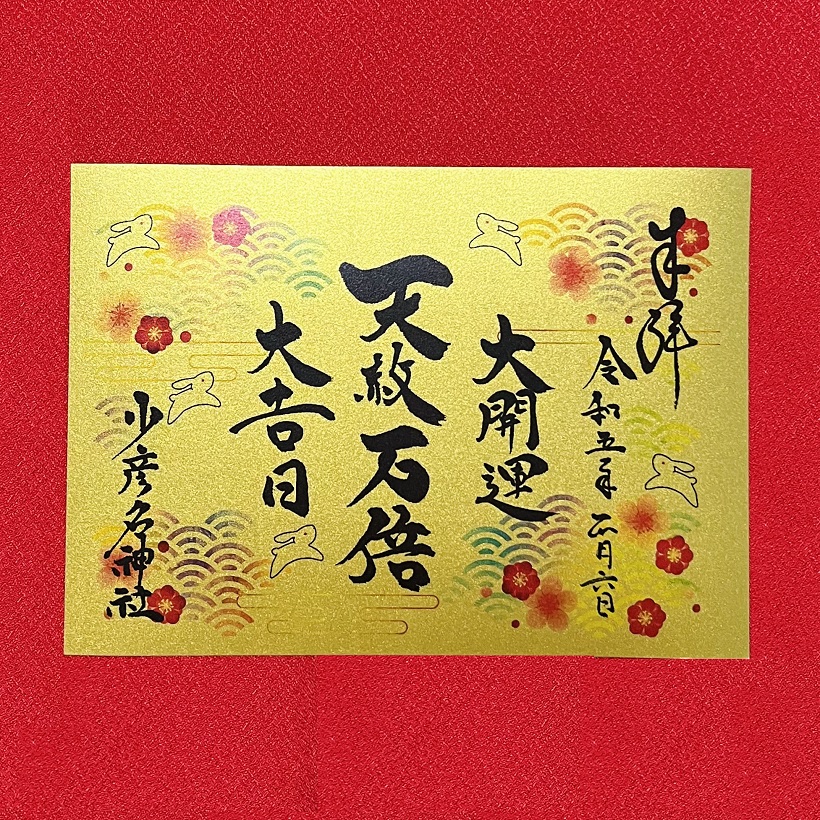 奉拝
令和五年 正月六日
大開運
天赦万倍
大吉日
少彦名神社